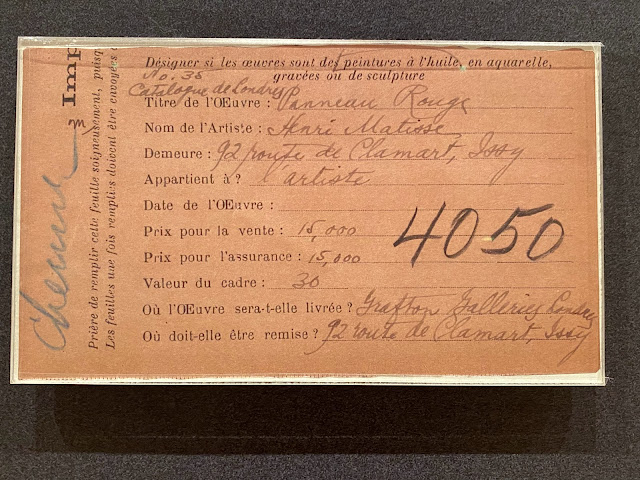 Désigner si les œuvres sont des peintures à l'huile, en aquarelle,
gravées ou de sculpture
No. 35
Catalogue de Londres
Titre de l'Œuvre : Panneau Rouge
Nom de l'Artiste : Henri Matisse
Demeure : 92 route de Clamart, Issy
Appartient à ? artiste
Date de l'Œuvre :
Prix pour la vente : 15,000
Prix pour l'assurance : 15,000
Valeur du cadre : 30
Où l'Œuvre sera-t-elle livrée ? Grafton Galleries Londres
Où doit-elle être remise ? 92 route de Clamart, Issy
4050
Imp
Prière de remplir cette feuille soigneusement, puisq
Les feuilles une fois remplies doivent être envoyées